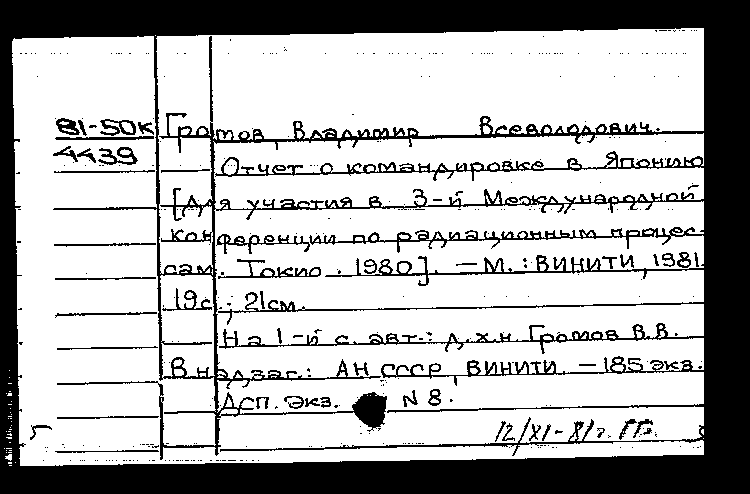 81-50к Громов, Владимир Всеволодович.
4439 Отчет о командировке в Японию
[Для участия в 3-й Международной
конференции по радиационным процес-
сам. Токио. 1980]. — М.: ВИНИТИ, 1981.
19с.; 21см.
На 1-й с. авт.: д.х.н. Громов В.В.
В надзаг.: АН СССР, ВИНИТИ. — 185 экз.
ДСП. Экз. N 8.
12/XI-81г.